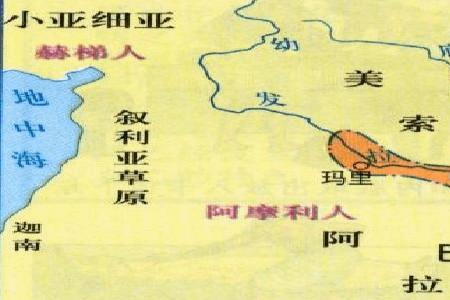 小亚细亚
赫梯人
地中海
叙利亚草原
迦南
幼发
美索
玛里
阿摩利人
阿拉